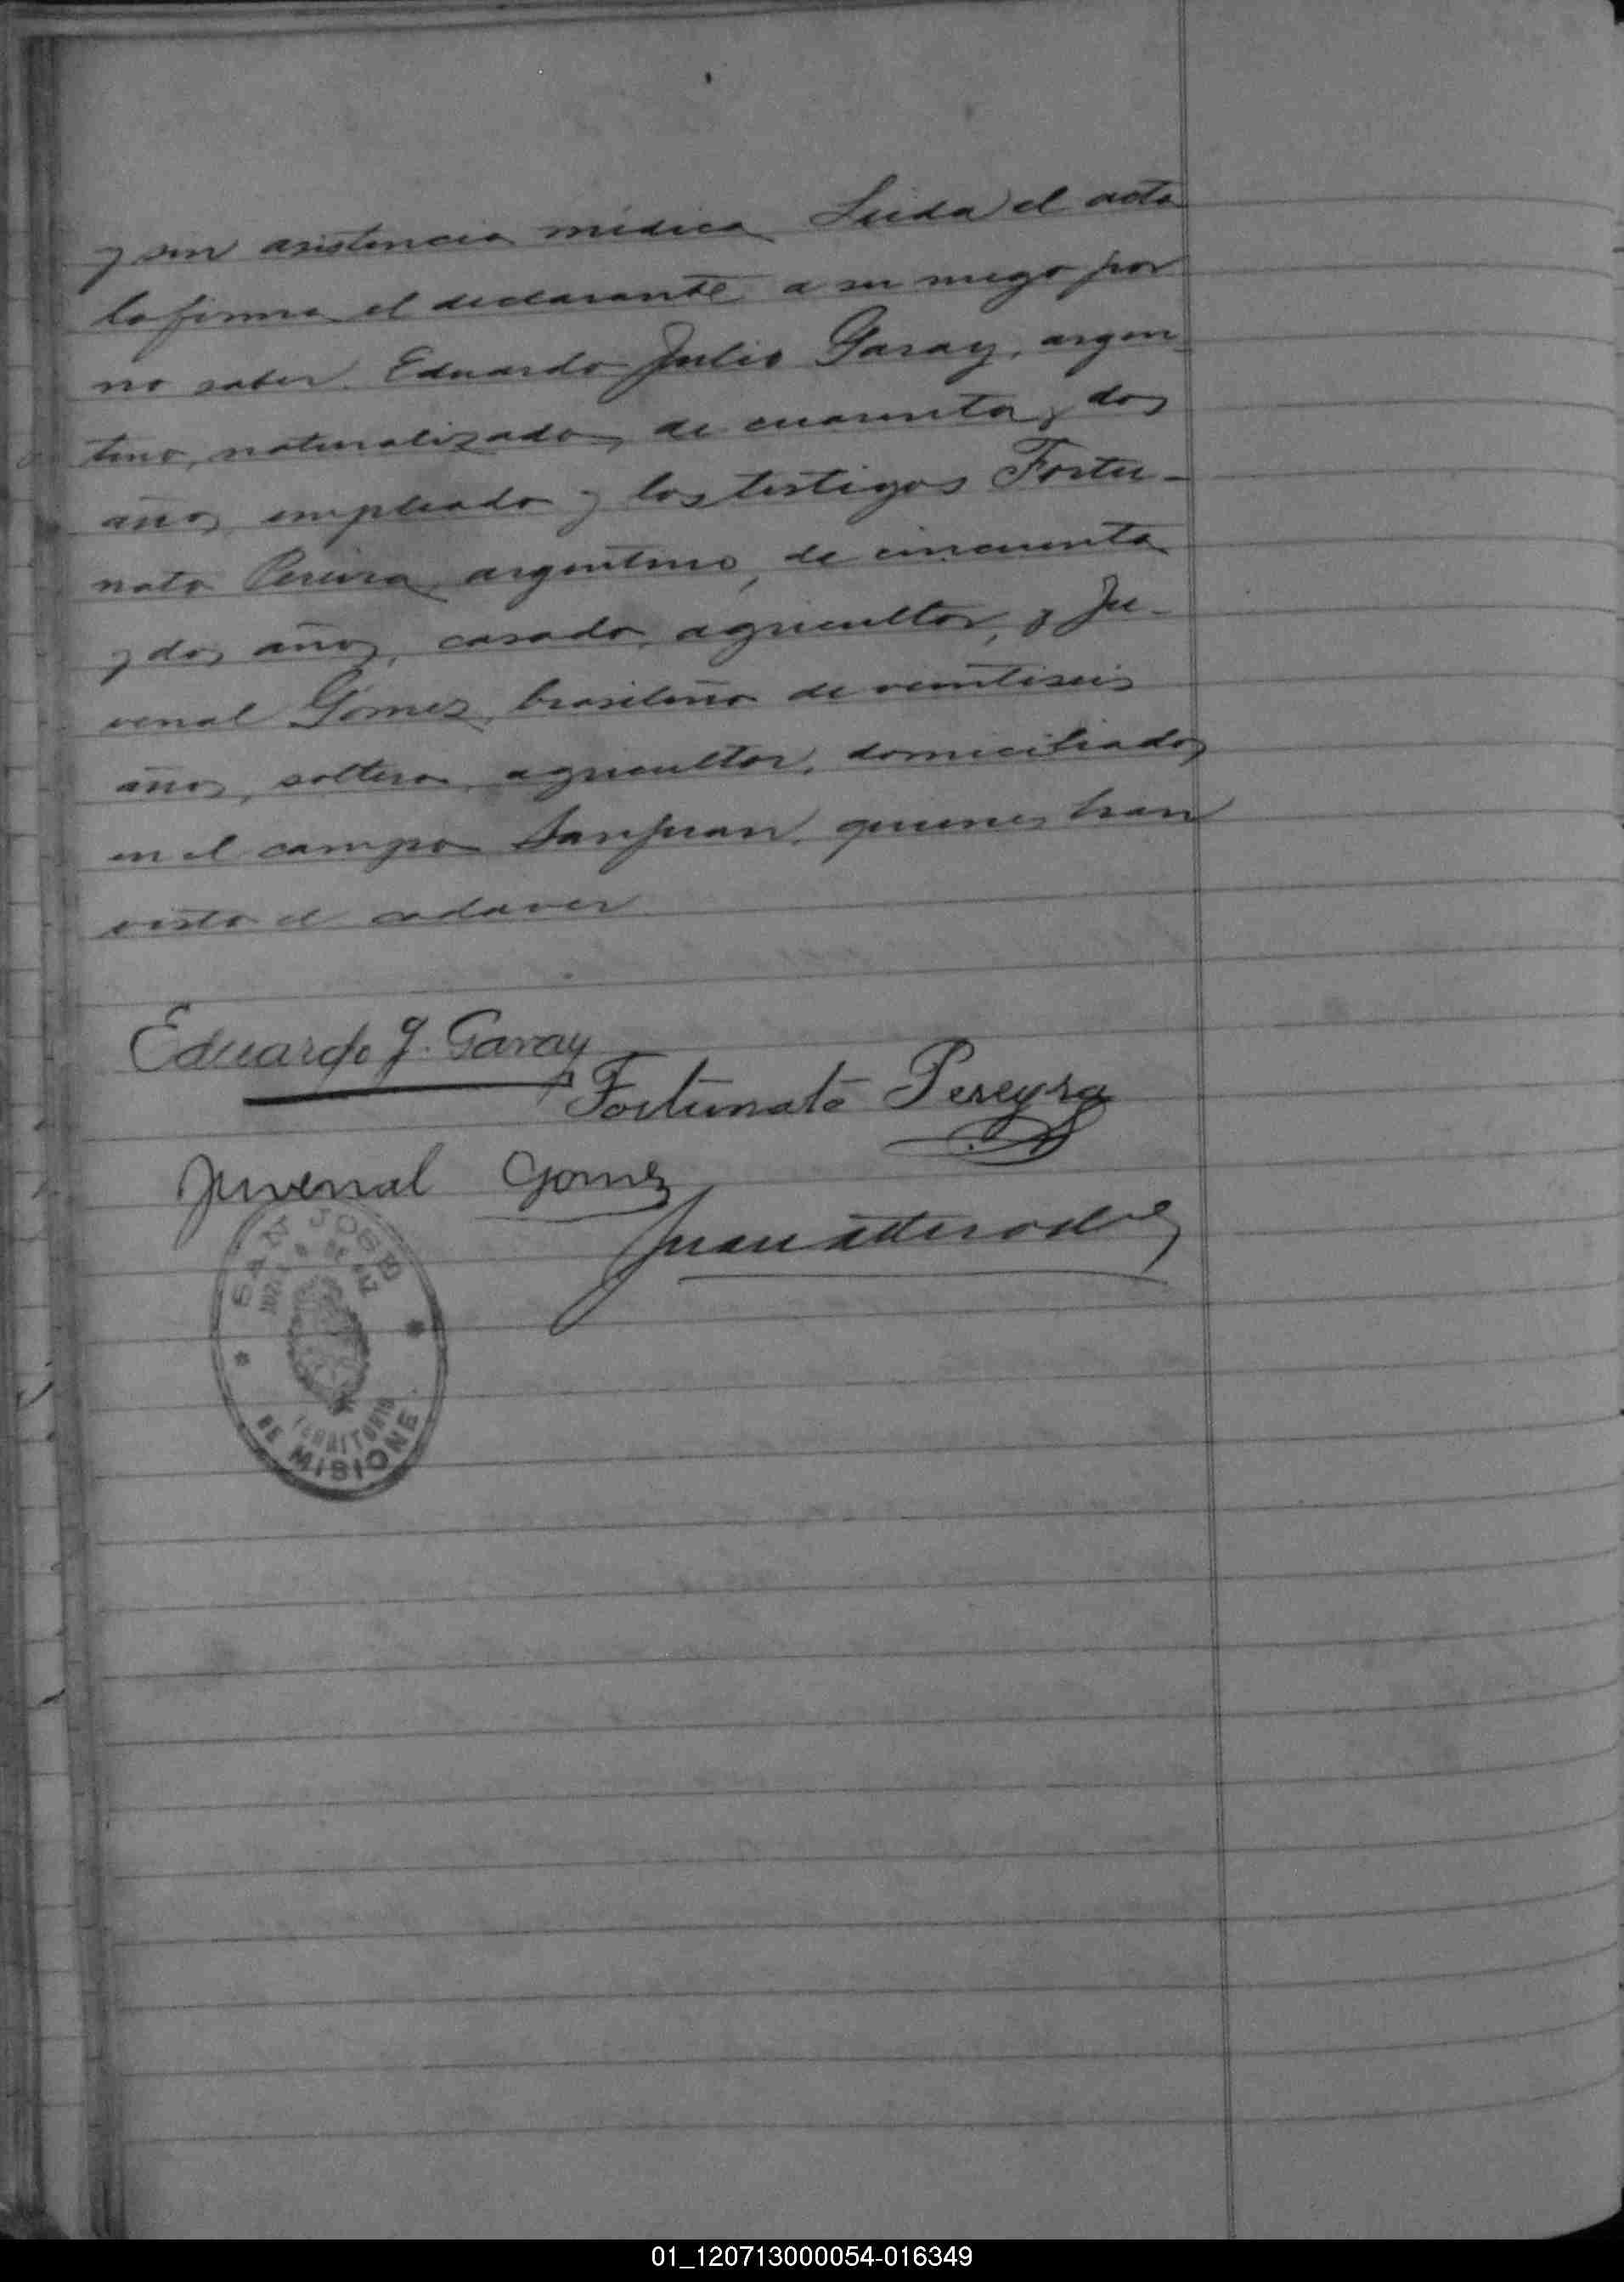 y sin asistencia médica Leida el acta
la firma el declarante a su ruego por
no saber. Eduardo Julio Garay, argen-
tino, naturalizado, de cuarenta y dos
años empleado y los testigos Fortu-
nato Pereira argentino, de cincuenta
y dos años, casado, agricultor, y Ju-
venal Gomez, brasileño de veintiseis
años, soltero, agricultor, domiciliados
en el campo San Juan, quienes han
visto el cadaver
Eduardo J. Garay
Fortunato Pereyra
Juvenal Gomez
Juan
SAN JOSE
JUZGADO DE PAZ
TERRITORIO
DE MISIONE
01_120713000054-016349